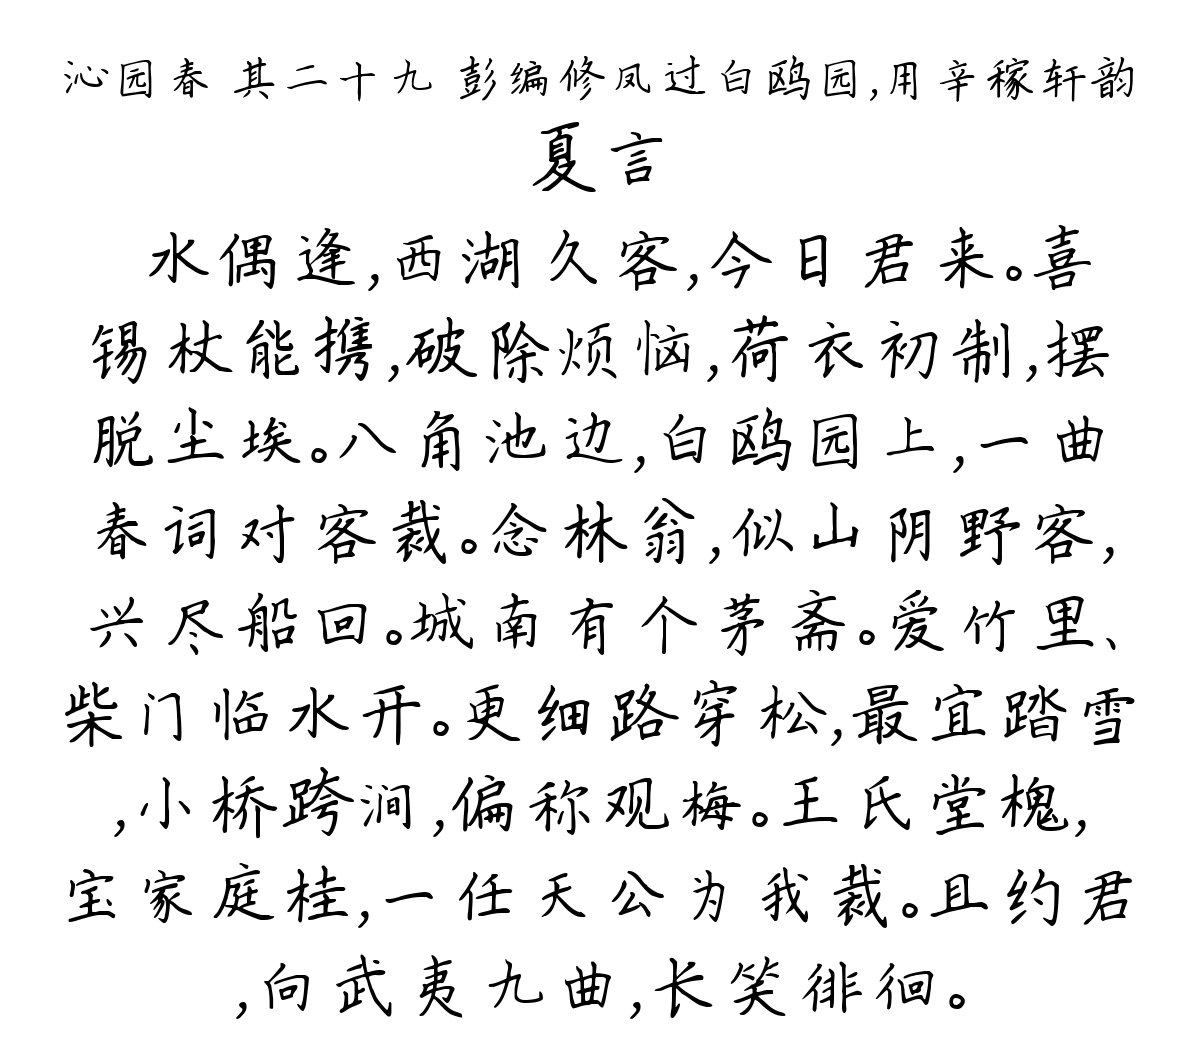 沁园春 其二十九 彭编修凤过白鸥园,用辛稼轩韵
夏言
水偶逢,西湖久客,今日君来。喜
锡杖能携,破除烦恼,荷衣初制,摆
脱尘埃。八角池边,白鸥园上,一曲
春词对客裁。念林翁,似山阴野客,
兴尽船回。城南有个茅斋。爱竹里、
柴门临水开。更细路穿松,最宜踏雪
,小桥跨涧,偏称观梅。王氏堂槐,
宝家庭桂,一任天公为我裁。且约君
,向武夷九曲,长笑徘徊。